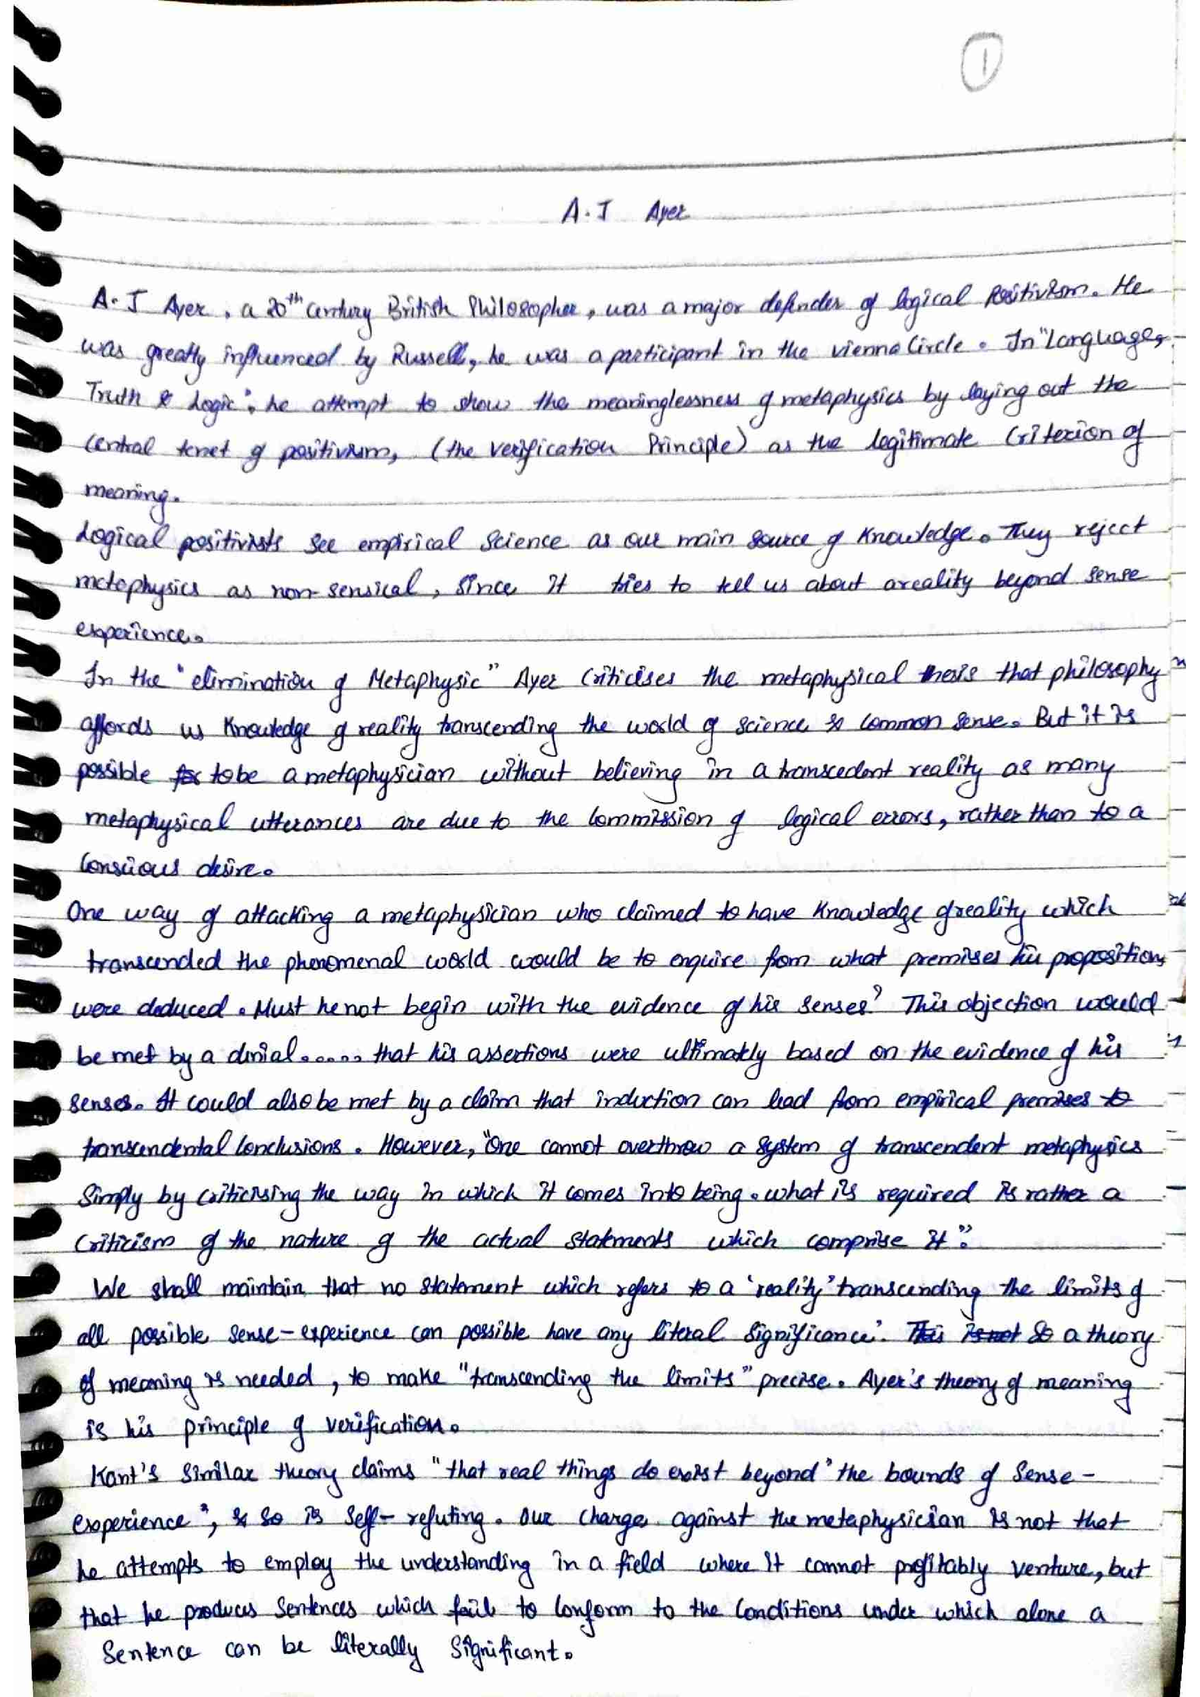 1
A.J Ayer
A.J Ayer, a 20th century British Philosopher, was a major defnder of logical Positivism. He
was greatly influenced by Russell, he was a participant in the vienna Circle. In "Language,
Truth & Logic", he attempt to show the meaninglessness of metaphysics by laying out the
central tenet of positivism, (the verification Principle) as the legitimate Criterion of
meaning.
Logical positivists see empirical Science as our main source of Knowledge. They reject
metaphysics as non-sensical, Since it tries to tell us about a reality beyond sense
experience.
In the "elimination of Metaphysic" Ayer Criticises the metaphysical thesis that philosophy
affords us Knowledge of reality transcending the world of science & common sense. But it is
possible for to be a metaphysician without believing in a transcedent reality as many
metaphysical utterances are due to the Commission of logical errors, rather than to a
Conscious desire.
One way of attacking a metaphysician who claimed to have Knowledge of reality which
transcended the phenomenal world would be to enquire from what premises his propositions
were deduced. Must he not begin with the evidence of his senses? This objection would
be met by a denial..... that his assertions were ultimately based on the evidence of his
senses. It could also be met by a claim that induction can lead from empirical premises to
transcendental Conclusions. However, "One cannot overthrow a system of transcendent metaphysics
Simply by criticising the way in which it comes into being. what is required is rather a
Criticism of the nature of the actual statements which comprise it".
We shall maintain that no statement which refers to a 'reality' transcending the limits of
all possible sense-experience can possible have any literal Significance'. This is not So a theory
of meaning is needed, to make "transcending the limits" precise. Ayer's theory of meaning
is his principle of verification.
Kant's Similar theory claims "that real things do exist beyond" the bounds of Sense-
experience", & so is Self-refuting. Our charge against the metaphysician is not that
he attempts to employ the understanding in a field where it cannot profitably venture, but
that he produces Sentences which fail to Conform to the Conditions under which alone a
Sentence can be literally Significant.